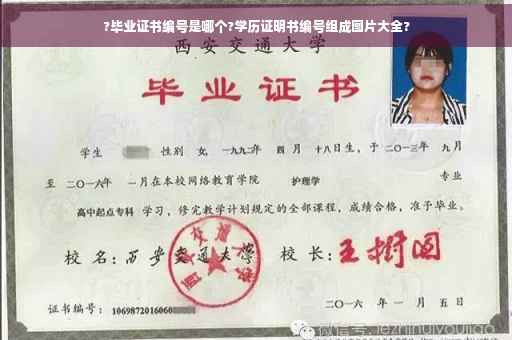 ?毕业证书编号是哪个?学历证明书编号组成图片大全?
西安交通大学
毕业证书
学生 性别 女, 一九九二年 四 月 十八日生, 于 二〇一三年 九月
至 二〇一六年 一月在本校网络教育学院 护理学 专业
高中起点专科 学习, 修完教学计划规定的全部课程, 成绩合格, 准予毕业。
校 名: 西安交通大学 校 长: 王树国
西安交通大学
证书编号: 1069872016060
二〇一六 年 一 月 五 日
微信号: jezhihuiyoujiao